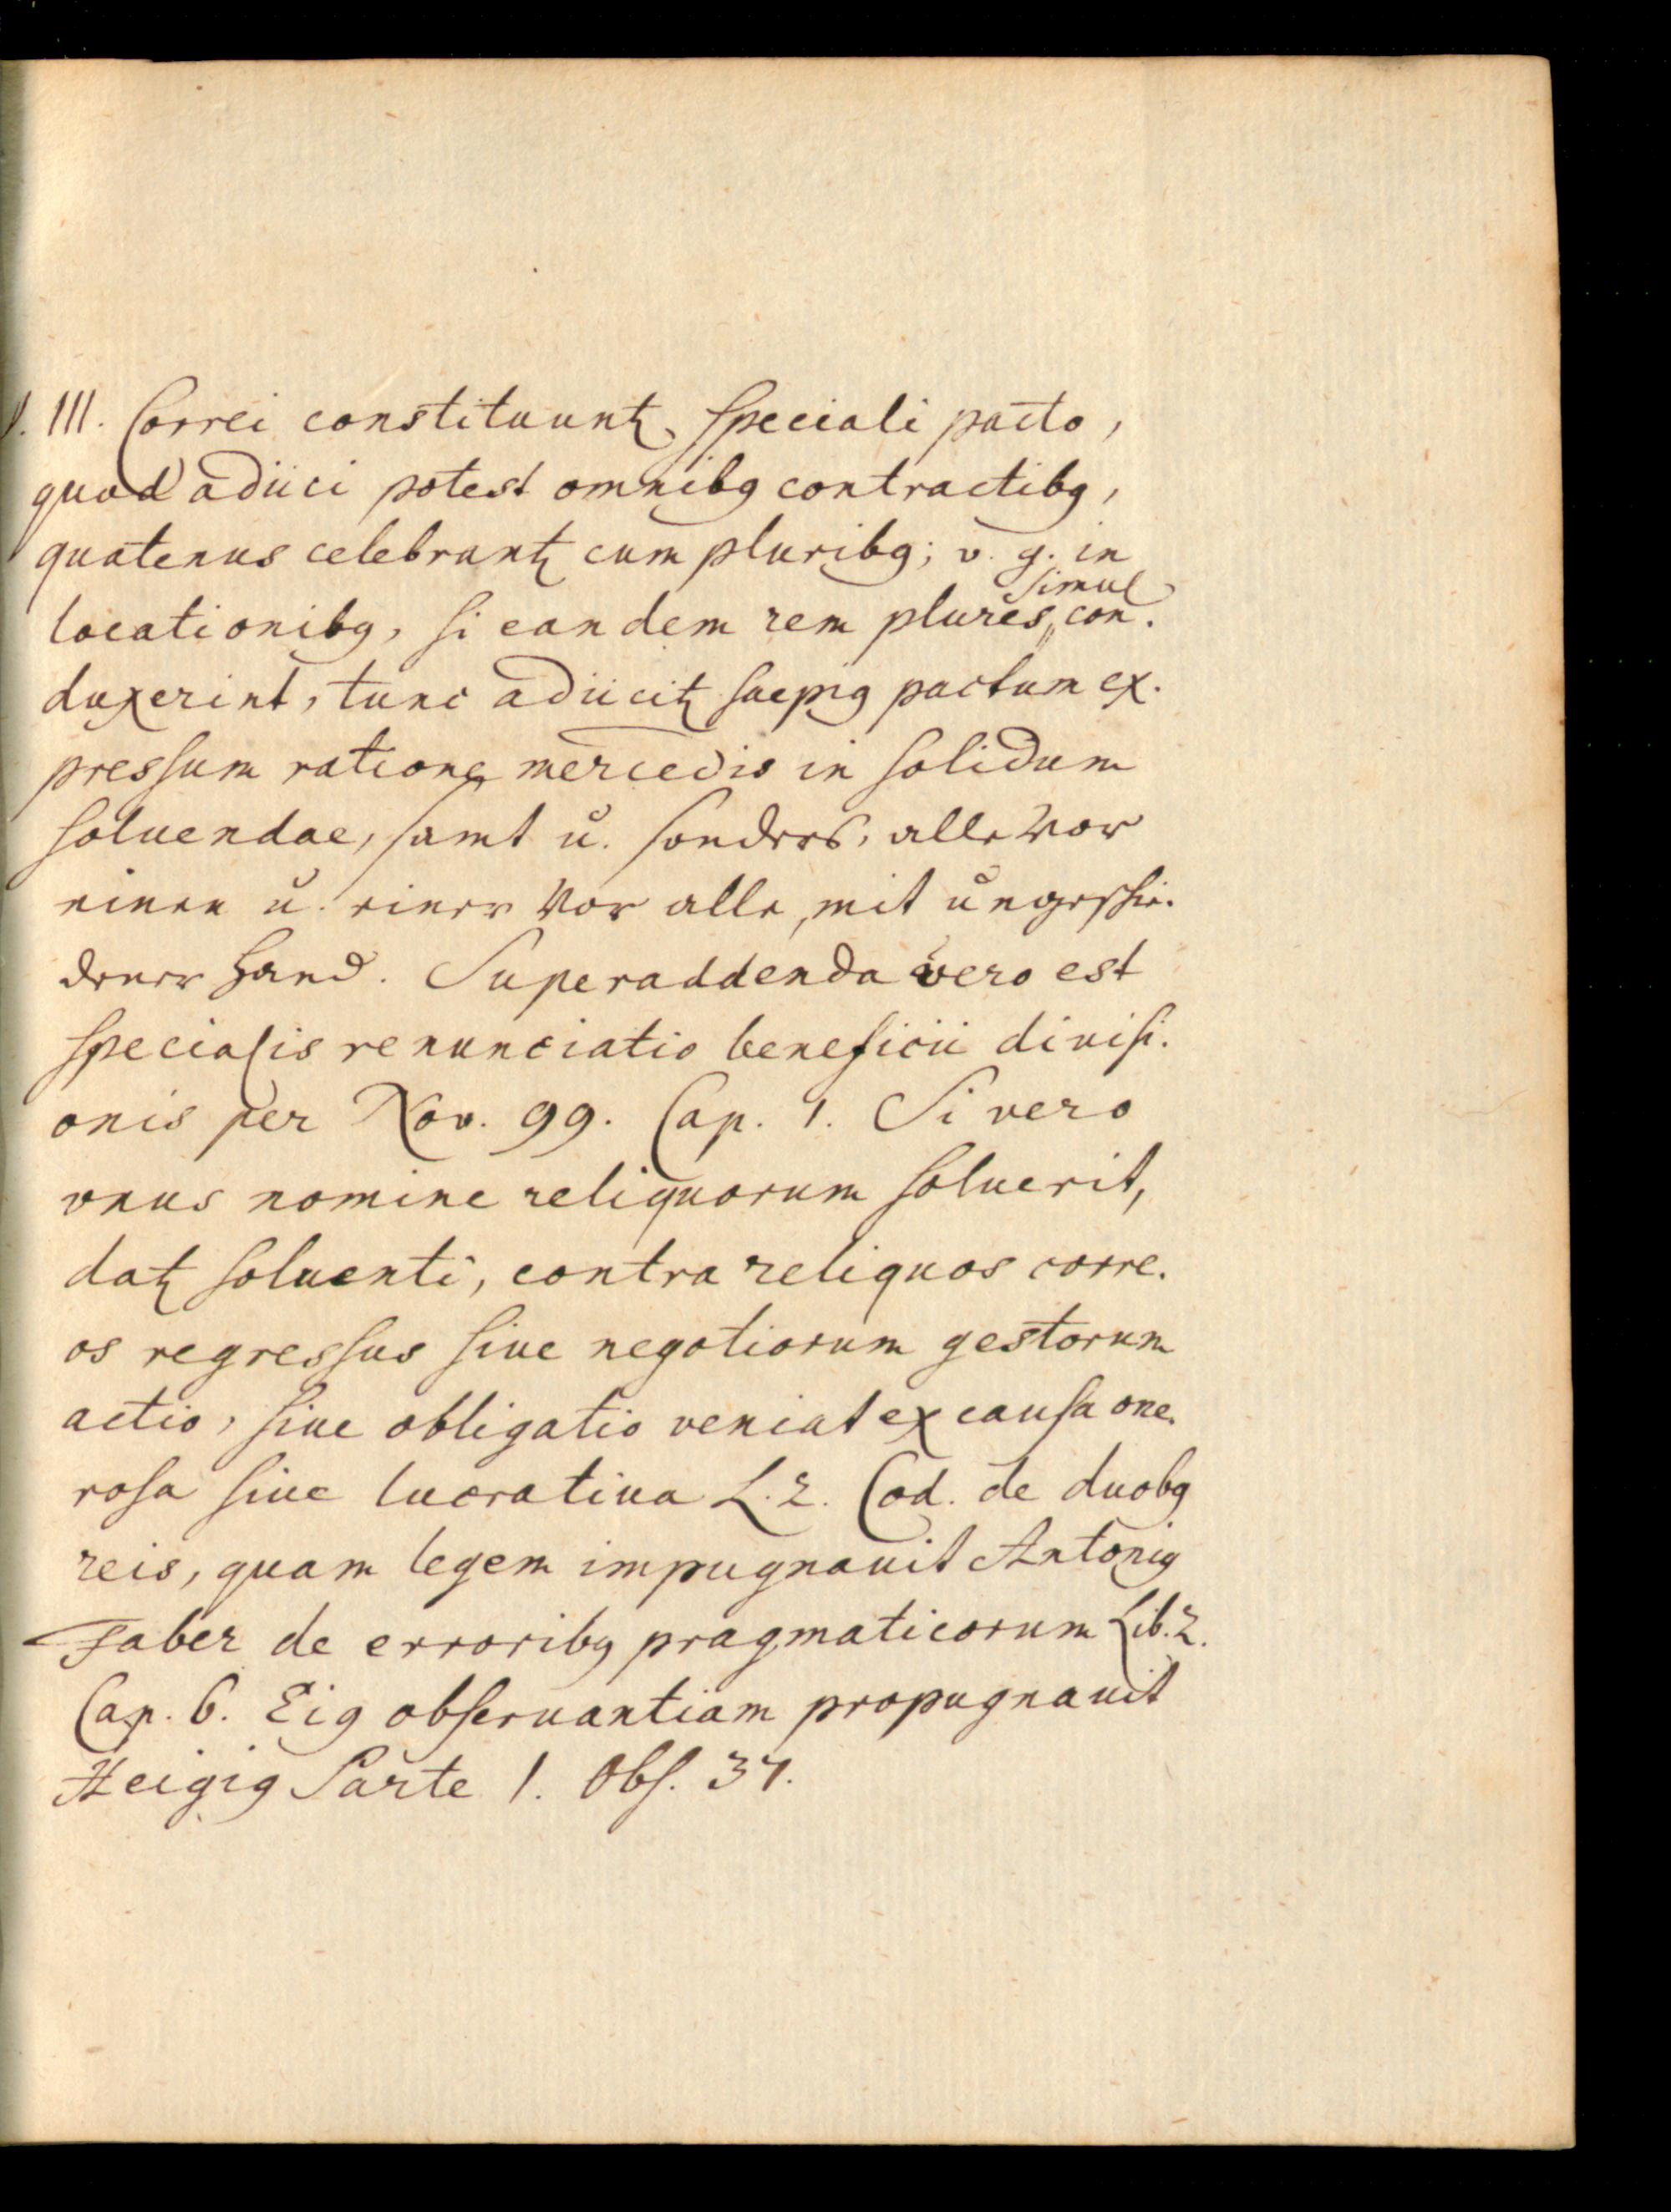 §. III. Correi constituuntꝛ speciali pacto,
quod adiici potest omnibꝫ contractibꝫ,
quatenus celebrantꝛ cum pluribꝫ; v. g. in
simul
locationibꝫ, si eandem rem plures con-
duxerint, tunc adiicitꝛ saepiꝰ pactum ex-
pressum ratione mercedis in solidum
soluendae, samt u. sonders, alle vor
einen u. einer vor alle, mit ungeschie-
dener Hand. Superaddenda vero est
specialis renunciatio beneficii divisi-
onis per Nov. 99. Cap. 1. Si vero
vnus nomine reliquorum soluerit,
datꝛ soluenti, contra reliquos corre-
os regressus siue negotiorum gestorum
actio, siue obligatio veniat ex causa one-
rosa siue lucratiua L. 2. Cod. de duobꝫ
reis, quam legem impugnauit Antoniꝰ
Faber de erroribꝫ pragmaticorum Lib. 2.
Cap. 6. Eiꝰ obseruantiam propugnauit
Heigiꝰ Parte 1. Obs. 37.